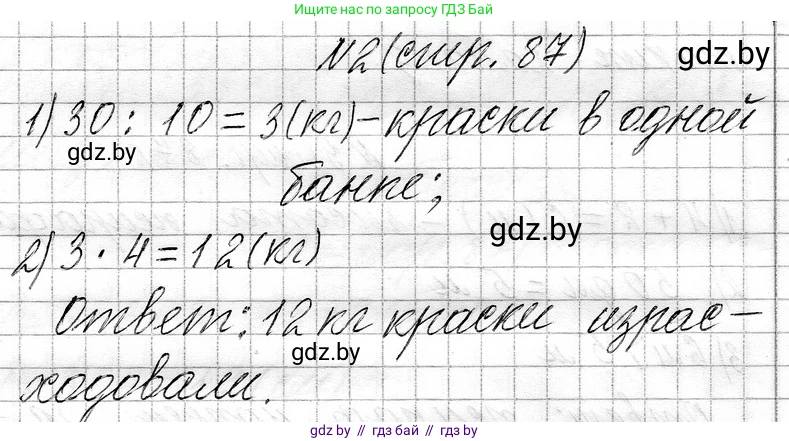 Ищите нас по запросу ГДЗ Бай
N2 (стр. 87)
gdz.by
1) 30 : 10 = 3 (кг) – краски в одной
gdz.by
банке;
gdz.by
2) 3 · 4 = 12 (кг)
Ответ: 12 кг краски израс-
gdz.by
ходовали.
gdz.by // гдз бай // gdz.by